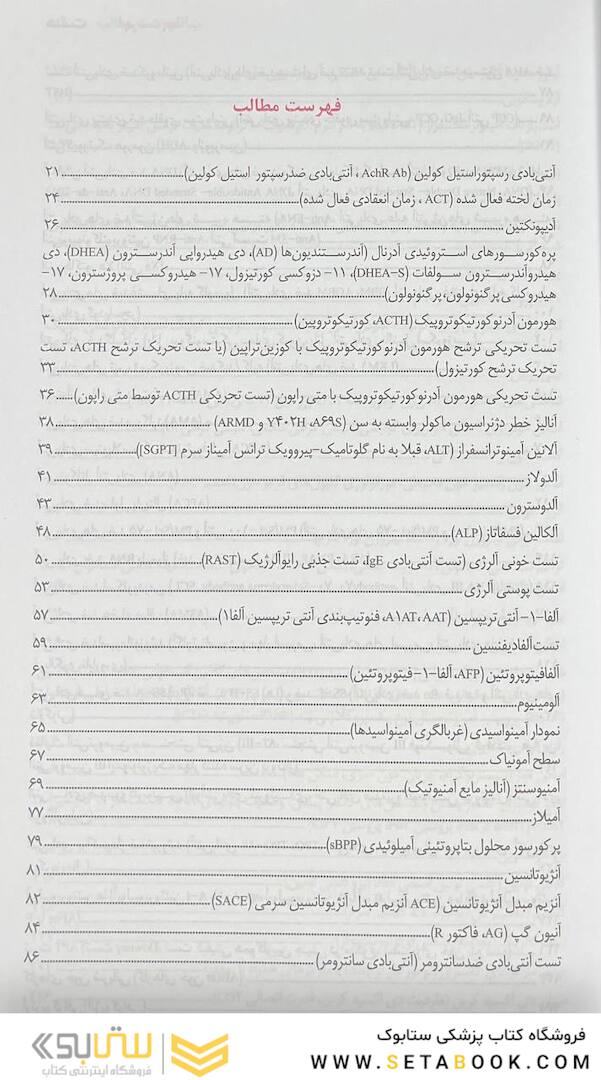 فهرست مطالب
آنتی‌بادی رسپتوراستیل کولین (AchR Ab ، آنتی‌بادی ضدرسپتور استیل کولین)..........۲۱
زمان لخته فعال شده (ACT ، زمان انعقادی فعال شده)..........۲۴
آدیپونکتین..........۲۶
پره‌کورسورهای استروئیدی آدرنال (آندرستندیون‌ها (AD)، دی هیدرواپی آندرسترون (DHEA)، دی
هیدروآندرسترون سولفات (DHEA-S)، ۱۱- دزوکسی کورتیزول، ۱۷- هیدروکسی پروژسترون، ۱۷-
هیدروکسی پرگنونولون، پرگنونولون)..........۲۸
هورمون آدرنوکورتیکوتروپیک (ACTH، کورتیکوتروپین)..........۳۰
تست تحریکی ترشح هورمون آدرنوکورتیکوتروپیک با کوزین‌تراپین (یا تست تحریک ترشح ACTH، تست
تحریک ترشح کورتیزول)..........۳۳
تست تحریکی هورمون آدرنوکورتیکوتروپیک با متی راپون (تست تحریکی ACTH توسط متی راپون)..........۳۶
آنالیز خطر دژنراسیون ماکولر وابسته به سن (Y۴۰۲H ،A۶۹S و ARMD)..........۳۸
آلانین آمینوترانسفراز (ALT، قبلا به نام گلوتامیک-پیروویک ترانس آمیناز سرم [SGPT])..........۳۹
آلدولاز..........۴۱
آلدوسترون..........۴۳
آلکالین فسفاتاز (ALP)..........۴۸
تست خونی آلرژی (تست آنتی‌بادی IgE، تست جذبی رایوآلرژیک (RAST)..........۵۰
تست پوستی آلرژی..........۵۳
آلفا-۱- آنتی‌تریپسین (A۱AT، AAT، فنوتیپ‌بندی آنتی تریپسین آلفا۱)..........۵۷
تست‌آلفادیفنسین..........۵۹
آلفافیتوپروتئین (AFP، آلفا-۱-فیتوپروتئین)..........۶۱
آلومینیوم..........۶۳
نمودار آمینواسیدی (غربالگری آمینواسیدها)..........۶۵
سطح آمونیاک..........۶۷
آمنیوسنتز (آنالیز مایع آمنیوتیک)..........۶۹
آمیلاز..........۷۷
پرکورسور محلول بتاپروتئینی آمیلوئیدی (sBPP)..........۷۹
آنژیوتانسین..........۸۱
آنزیم مبدل آنژیوتانسین (ACE آنزیم مبدل آنژیوتانسین سرمی (SACE)..........۸۲
آنیون گپ (AG، فاکتور R)..........۸۴
تست آنتی‌بادی ضدسانترومر (آنتی‌بادی سانترومر)..........۸۶
فروشگاه کتاب پزشکی ستابوک
WWW.SETABOOK.COM
ستابوک
فروشگاه اینترنتی کتاب